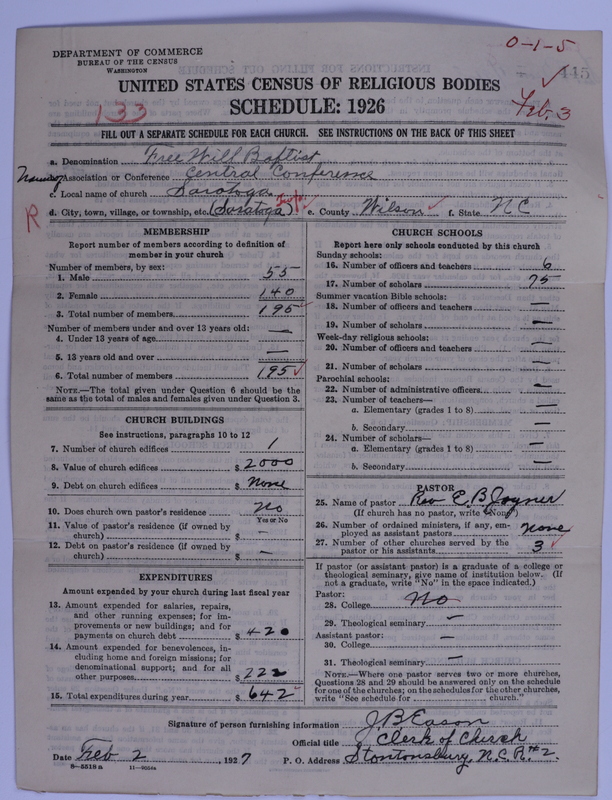 0-1-5
DEPARTMENT OF COMMERCE
BUREAU OF THE CENSUS
WASHINGTON
445
UNITED STATES CENSUS OF RELIGIOUS BODIES
133
SCHEDULE: 1926
Feb. 3
FILL OUT A SEPARATE SCHEDULE FOR EACH CHURCH. SEE INSTRUCTIONS ON THE BACK OF THIS SHEET
a. Denomination Free Will Baptist
Association or Conference Central Conference
c. Local name of church Saratoga
R
d. City, town, village, or township, etc. (Saratoga) e. County Wilson f. State N C
MEMBERSHIP
Report number of members according to definition of
member in your church
Number of members, by sex:
1. Male 55
2. Female 140
3. Total number of members 195
Number of members under and over 13 years old:
4. Under 13 years of age —
5. 13 years old and over —
6. Total number of members 195
NOTE.—The total given under Question 6 should be the
same as the total of males and females given under Question 3.
CHURCH BUILDINGS
See instructions, paragraphs 10 to 12
7. Number of church edifices 1
8. Value of church edifices $ 2000
9. Debt on church edifices $ None
10. Does church own pastor's residence No
Yes or No
11. Value of pastor's residence (if owned by
church) $ —
12. Debt on pastor's residence (if owned by
church) $ —
EXPENDITURES
Amount expended by your church during last fiscal year
13. Amount expended for salaries, repairs,
and other running expenses; for im-
provements or new buildings; and for
payments on church debt $ 420
14. Amount expended for benevolences, in-
cluding home and foreign missions; for
denominational support; and for all
other purposes $ 222
15. Total expenditures during year $ 642
CHURCH SCHOOLS
Report here only schools conducted by this church
Sunday schools:
16. Number of officers and teachers 6
17. Number of scholars 75
Summer vacation Bible schools:
18. Number of officers and teachers —
19. Number of scholars —
Week-day religious schools:
20. Number of officers and teachers —
21. Number of scholars —
Parochial schools:
22. Number of administrative officers —
23. Number of teachers—
a. Elementary (grades 1 to 8) —
b. Secondary —
24. Number of scholars—
a. Elementary (grades 1 to 8) —
b. Secondary —
PASTOR
25. Name of pastor Rev E. B. Joyner
(If church has no pastor, write "None")
26. Number of ordained ministers, if any, em-
ployed as assistant pastors none
27. Number of other churches served by the
pastor or his assistants 3
If pastor (or assistant pastor) is a graduate of a college or
theological seminary, give name of institution below. (If
not a graduate, write "No" in the space indicated.)
Pastor:
28. College No
29. Theological seminary —
Assistant pastor:
30. College —
31. Theological seminary —
NOTE.—Where one pastor serves two or more churches,
Questions 28 and 29 should be answered only on the schedule
for one of the churches; on the schedules for the other churches,
write "See schedule for church."
Signature of person furnishing information J B Eason
Official title Clerk of Church
Date Feb 2, 1927 P. O. Address Stontonsburg, N.C. R. #2.
8—5518 a 11—9056a